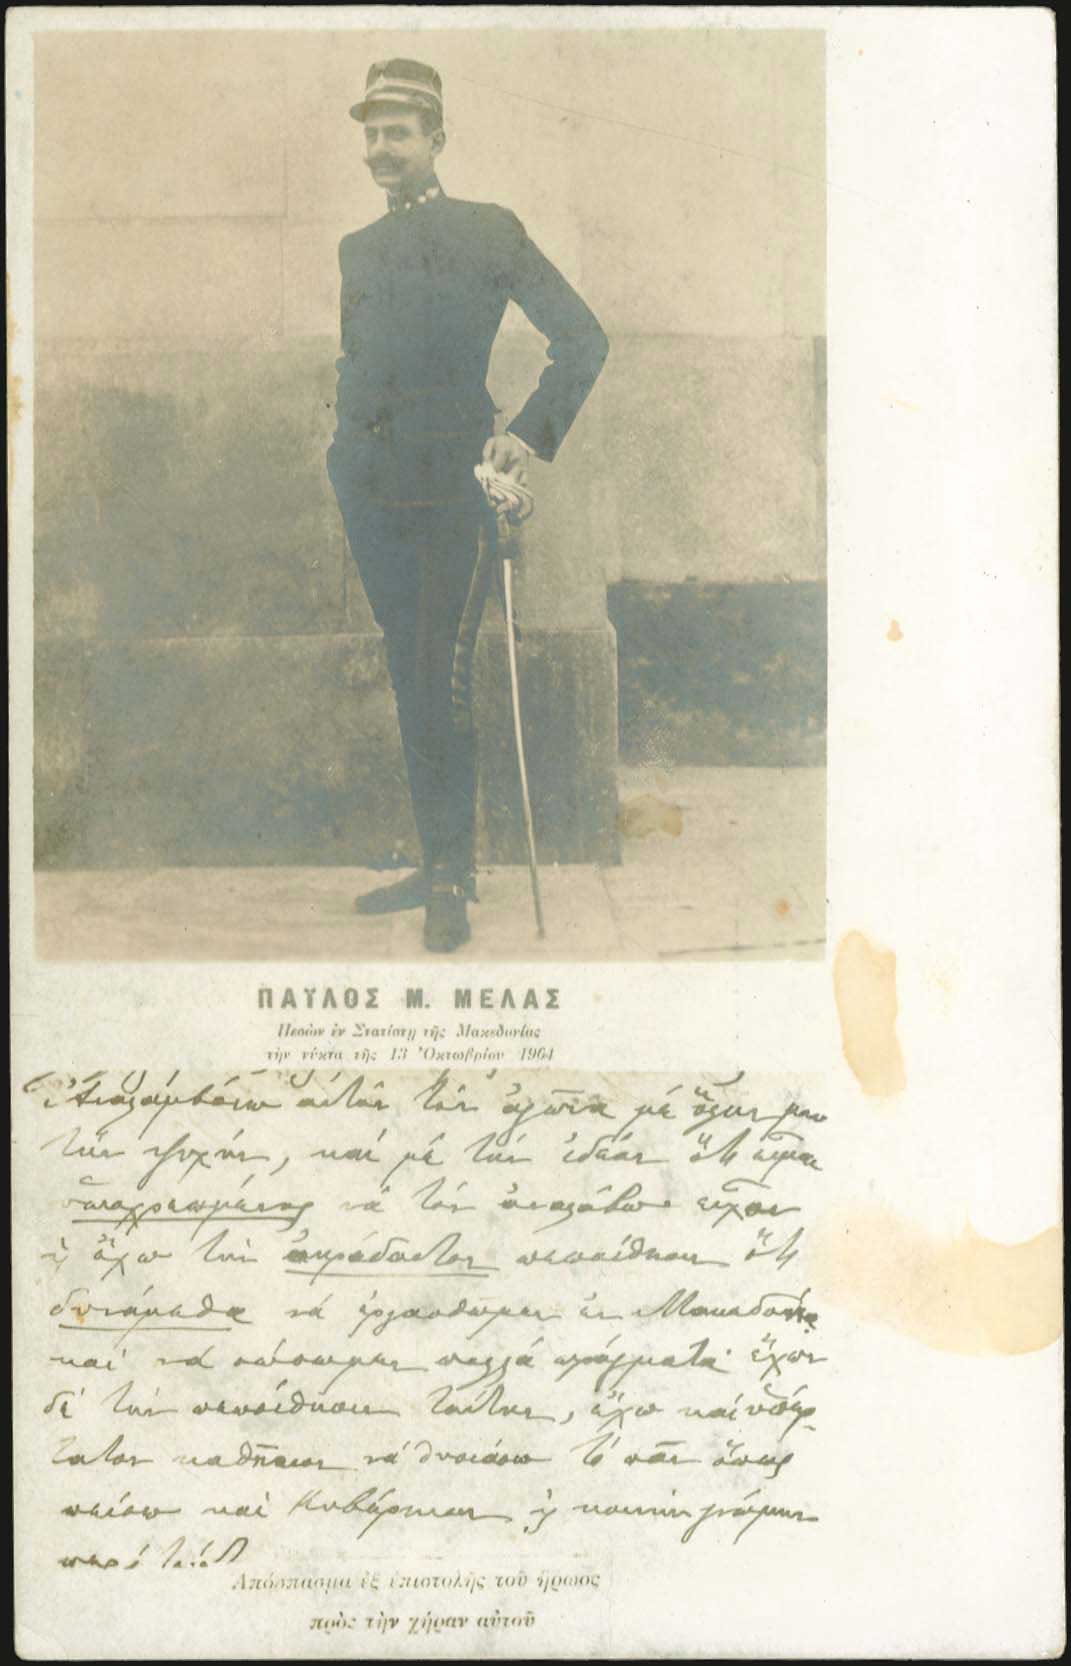 ΠΑΥΛΟΣ Μ. ΜΕΛΑΣ
Πεσὼν ἐν Στατίστῃ τῆς Μακεδονίας
τὴν νύκτα τῆς 13 Ὀκτωβρίου 1904
Ἀναλαμβάνω αὐτὸν τὸν ἀγῶνα μὲ ὅλην μου
τὴν ψυχήν, καὶ μὲ τὴν ἰδέαν ὅτι εἶμαι
ὑποχρεωμένος νὰ τὸν ἀναλάβω· εἶχον
ἢ ἔχω τὴν ἀκράδαντον πεποίθησιν ὅτι
δυνάμεθα νὰ ἐργασθῶμεν ἐν Μακεδονίᾳ
καὶ νὰ σώσωμεν πολλὰ πράγματα· ἔχων
δὲ τὴν πεποίθησιν ταύτην, ἔχω καὶ ὑπέρ-
τατον καθῆκον νὰ θυσιάσω τὸ πᾶν ὅπως
πείσω καὶ Κυβέρνησιν ἢ κοινὴν γνώμην
περὶ
Ἀπόσπασμα ἐξ ἐπιστολῆς τοῦ ἥρωος
πρὸς τὴν χήραν αὐτοῦ